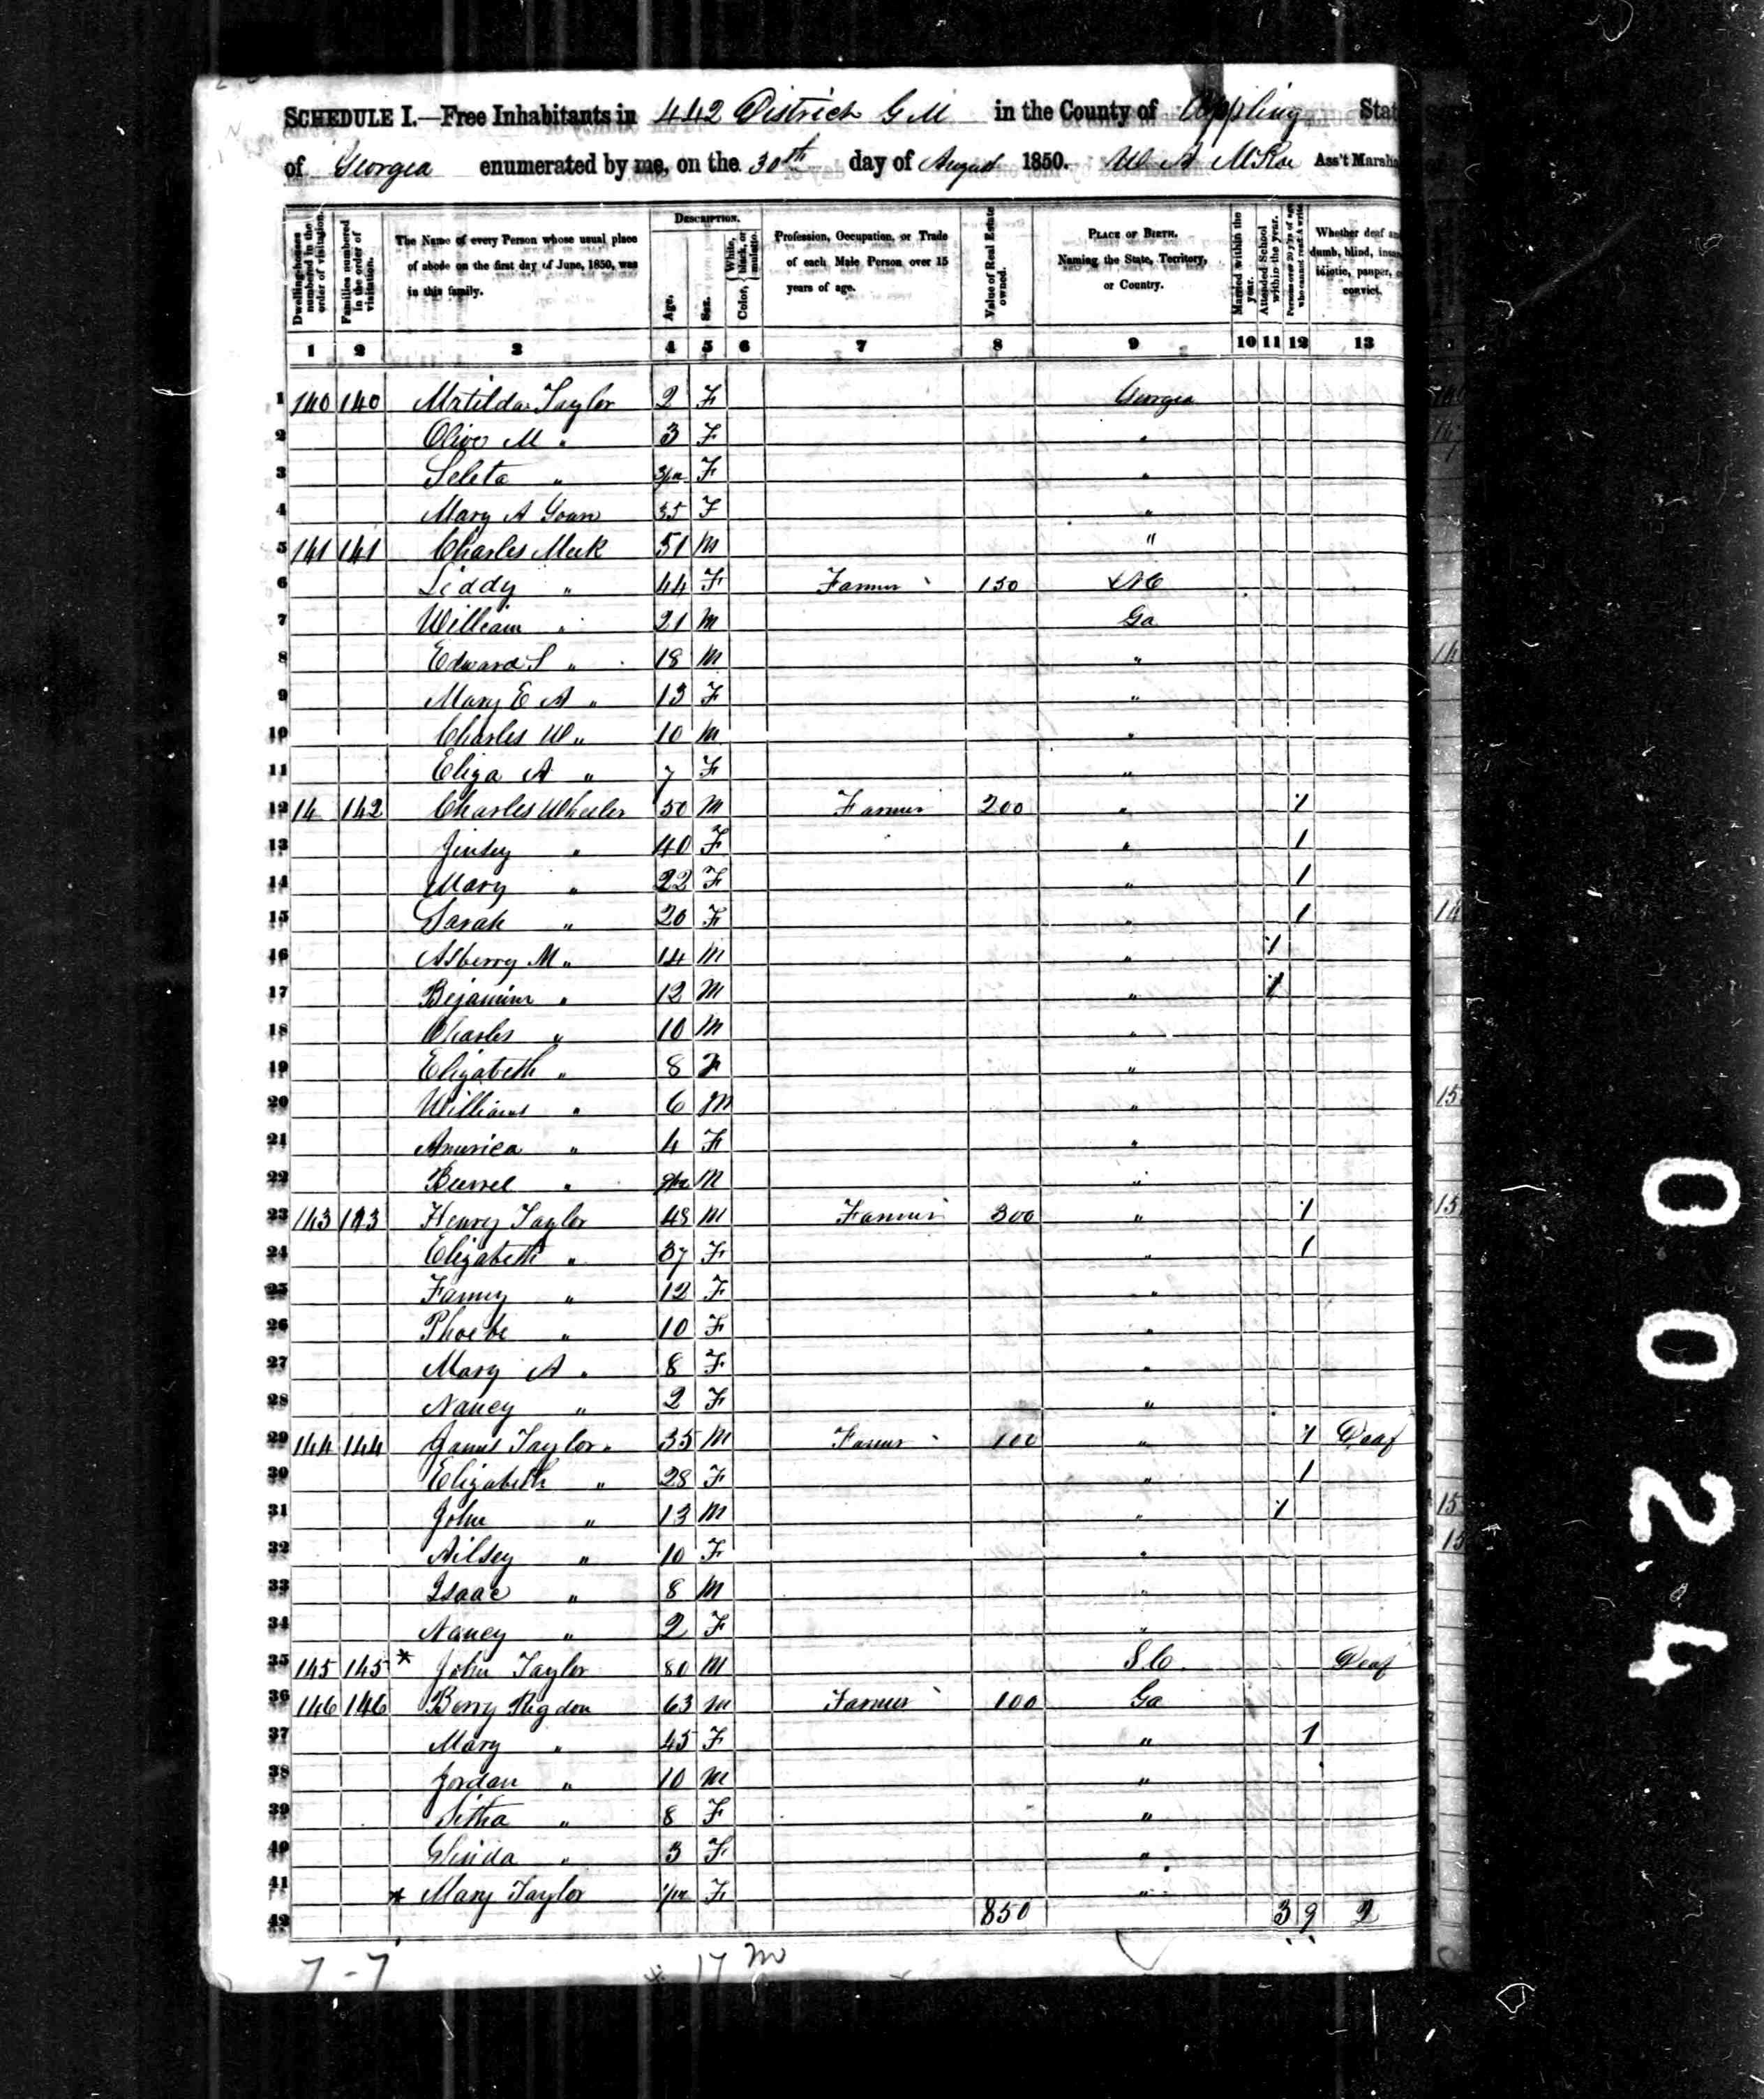 SCHEDULE I.—Free Inhabitants in 442 District G M in the County of Appling State
of Georgia enumerated by me, on the 30th day of August 1850. Ass't Marshal
Dwelling-houses numbered in the order of visitation.
Families numbered in the order of visitation.
The Name of every Person whose usual place of abode on the first day of June, 1850, was in this family.
DESCRIPTION.
Age.
Sex.
Color, White, black, or mulatto.
Profession, Occupation, or Trade of each Male Person over 15 years of age.
Value of Real Estate owned.
PLACE OF BIRTH. Naming the State, Territory, or Country.
Married within the year.
Attended School within the year.
Persons over 20 y'rs of age who cannot read & write
Whether deaf and dumb, blind, insane, idiotic, pauper, or convict.
1 2 3 4 5 6 7 8 9 10 11 12 13
1 140 140 Matilda Taylor 2 F Georgia
2 Olive M " 3 F "
3 Seleta " F "
4 Mary A 35 F "
5 141 141 Charles Meek 51 M "
6 Liddy " 44 F Farmer 150 NC
7 William " 21 M Ga
8 Edward S " 18 M "
9 Mary E A " 13 F "
10 Charles W " 10 M "
11 Eliza A " 7 F "
12 14 142 Charles Wheeler 50 M Farmer 200 " 1
13 Jinsey " 40 F " 1
14 Mary " 22 F " 1
15 Sarah " 20 F " 1
16 Asberry M " 14 M " 1
17 Bejamin " 12 M " 1
18 Charles " 10 M "
19 Elizabeth " 8 F "
20 William " 6 M "
21 America " 4 F "
22 Burrel " M "
23 143 143 Henry Taylor 48 M Farmer 300 " 1
24 Elizabeth " 37 F " 1
25 Fanny " 12 F "
26 Phoebe " 10 F "
27 Mary A " 8 F "
28 Nancy " 2 F "
29 144 144 James Taylor " 35 M Farmer 100 " 1 Deaf
30 Elizabeth " 28 F " 1
31 John " 13 M " 1
32 Ailsey " 10 F "
33 Isaac " 8 M "
34 Nancy " 2 F "
35 145 145 * John Taylor 80 M S C. Deaf
36 146 146 Berry Rigdon 63 M Farmer 100 Ga
37 Mary " 45 F " 1
38 Jordan " 10 M "
39 Sitha " 8 F "
40 " 3 F "
41 * Mary Taylor F "
42 850 3 9 2
7-7 17 m
0024